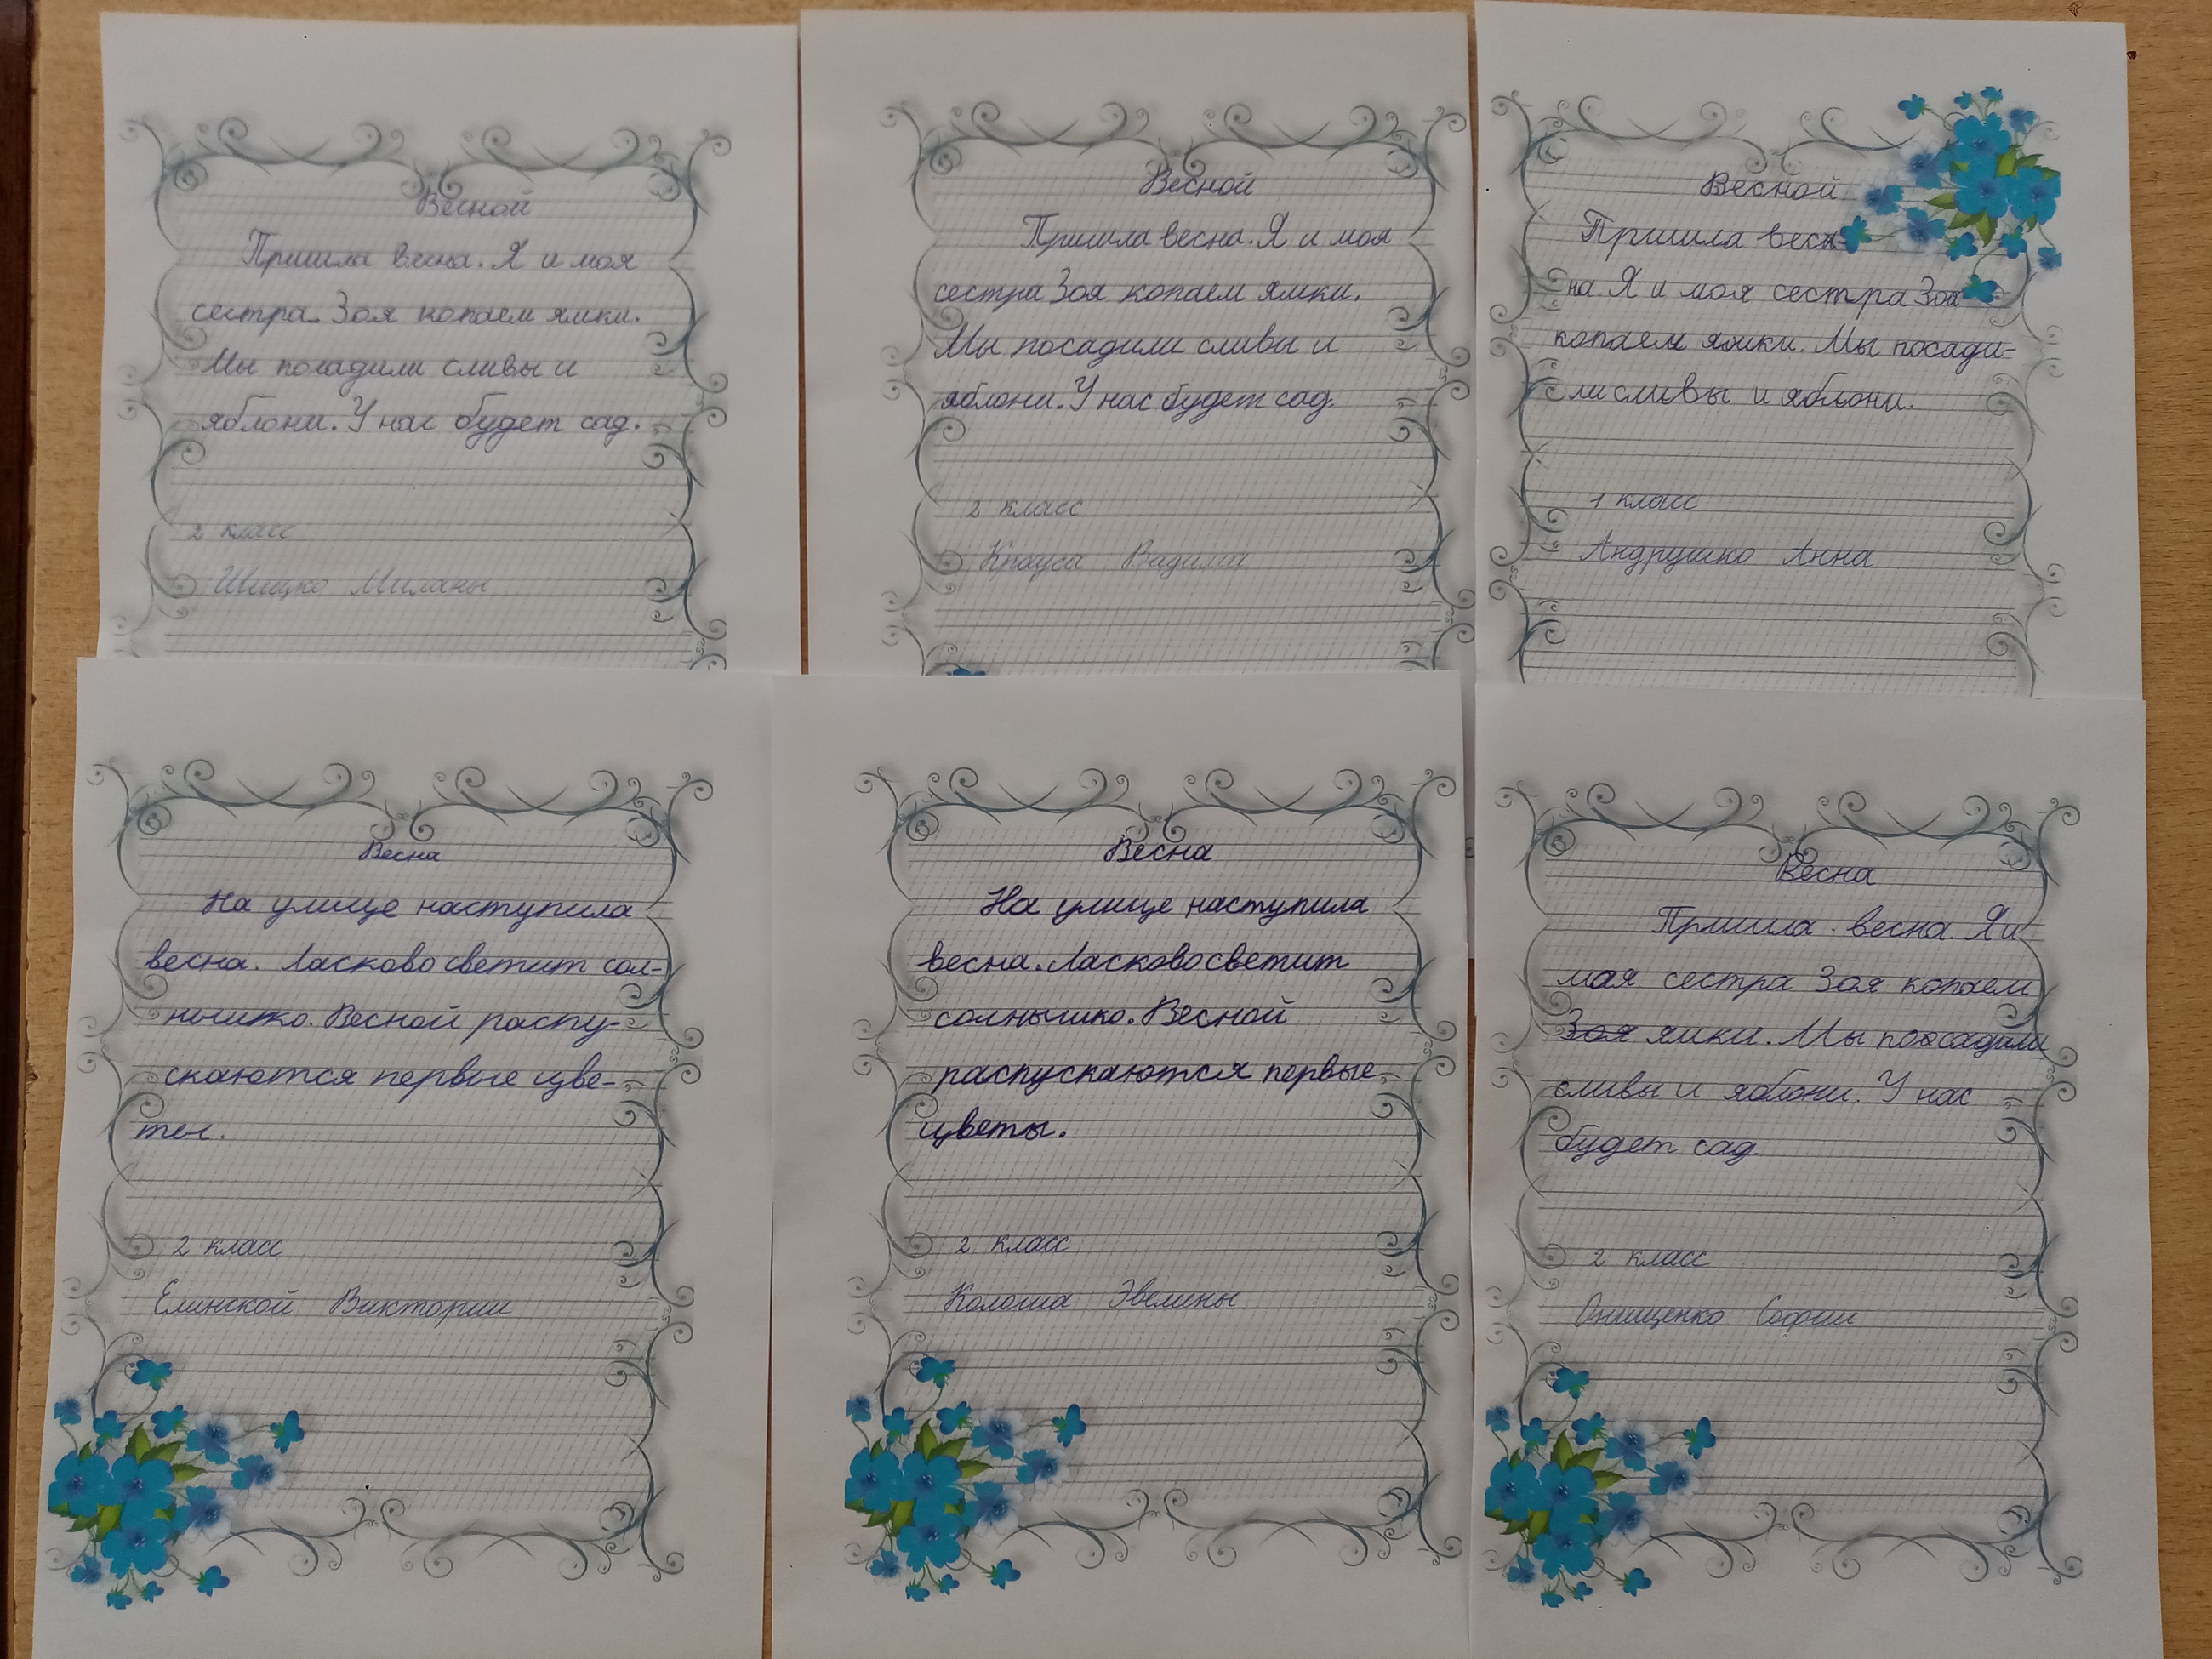 Весной
Пришла весна. Я и моя
сестра Зоя копаем ямки.
Мы посадили сливы и
яблони. У нас будет сад.
2 класс
Шишко Миланы
Весной
Пришла весна. Я и моя
сестра Зоя копаем ямки.
Мы посадили сливы и
яблони. У нас будет сад.
2 класс
Крауса Вадима
Весной
Пришла весн-
на. Я и моя сестра Зоя
копаем ямки. Мы посади-
ли сливы и яблони.
1 класс
Андрушко Анна
Весна
На улице наступила
весна. Ласково светит сол-
нышко. Весной распу-
скаются первые цве-
ты.
2 класс
Елинской Виктории
Весна
На улице наступила
весна. Ласково светит
солнышко. Весной
распускаются первые
цветы.
2 класс
Колоша Эвелины
Весна
Пришла весна. Я и
мая сестра Зоя копаем
Зоя ямки. Мы посадили
сливы и яблони. У нас
будет сад.
2 класс
Онищенко Софии